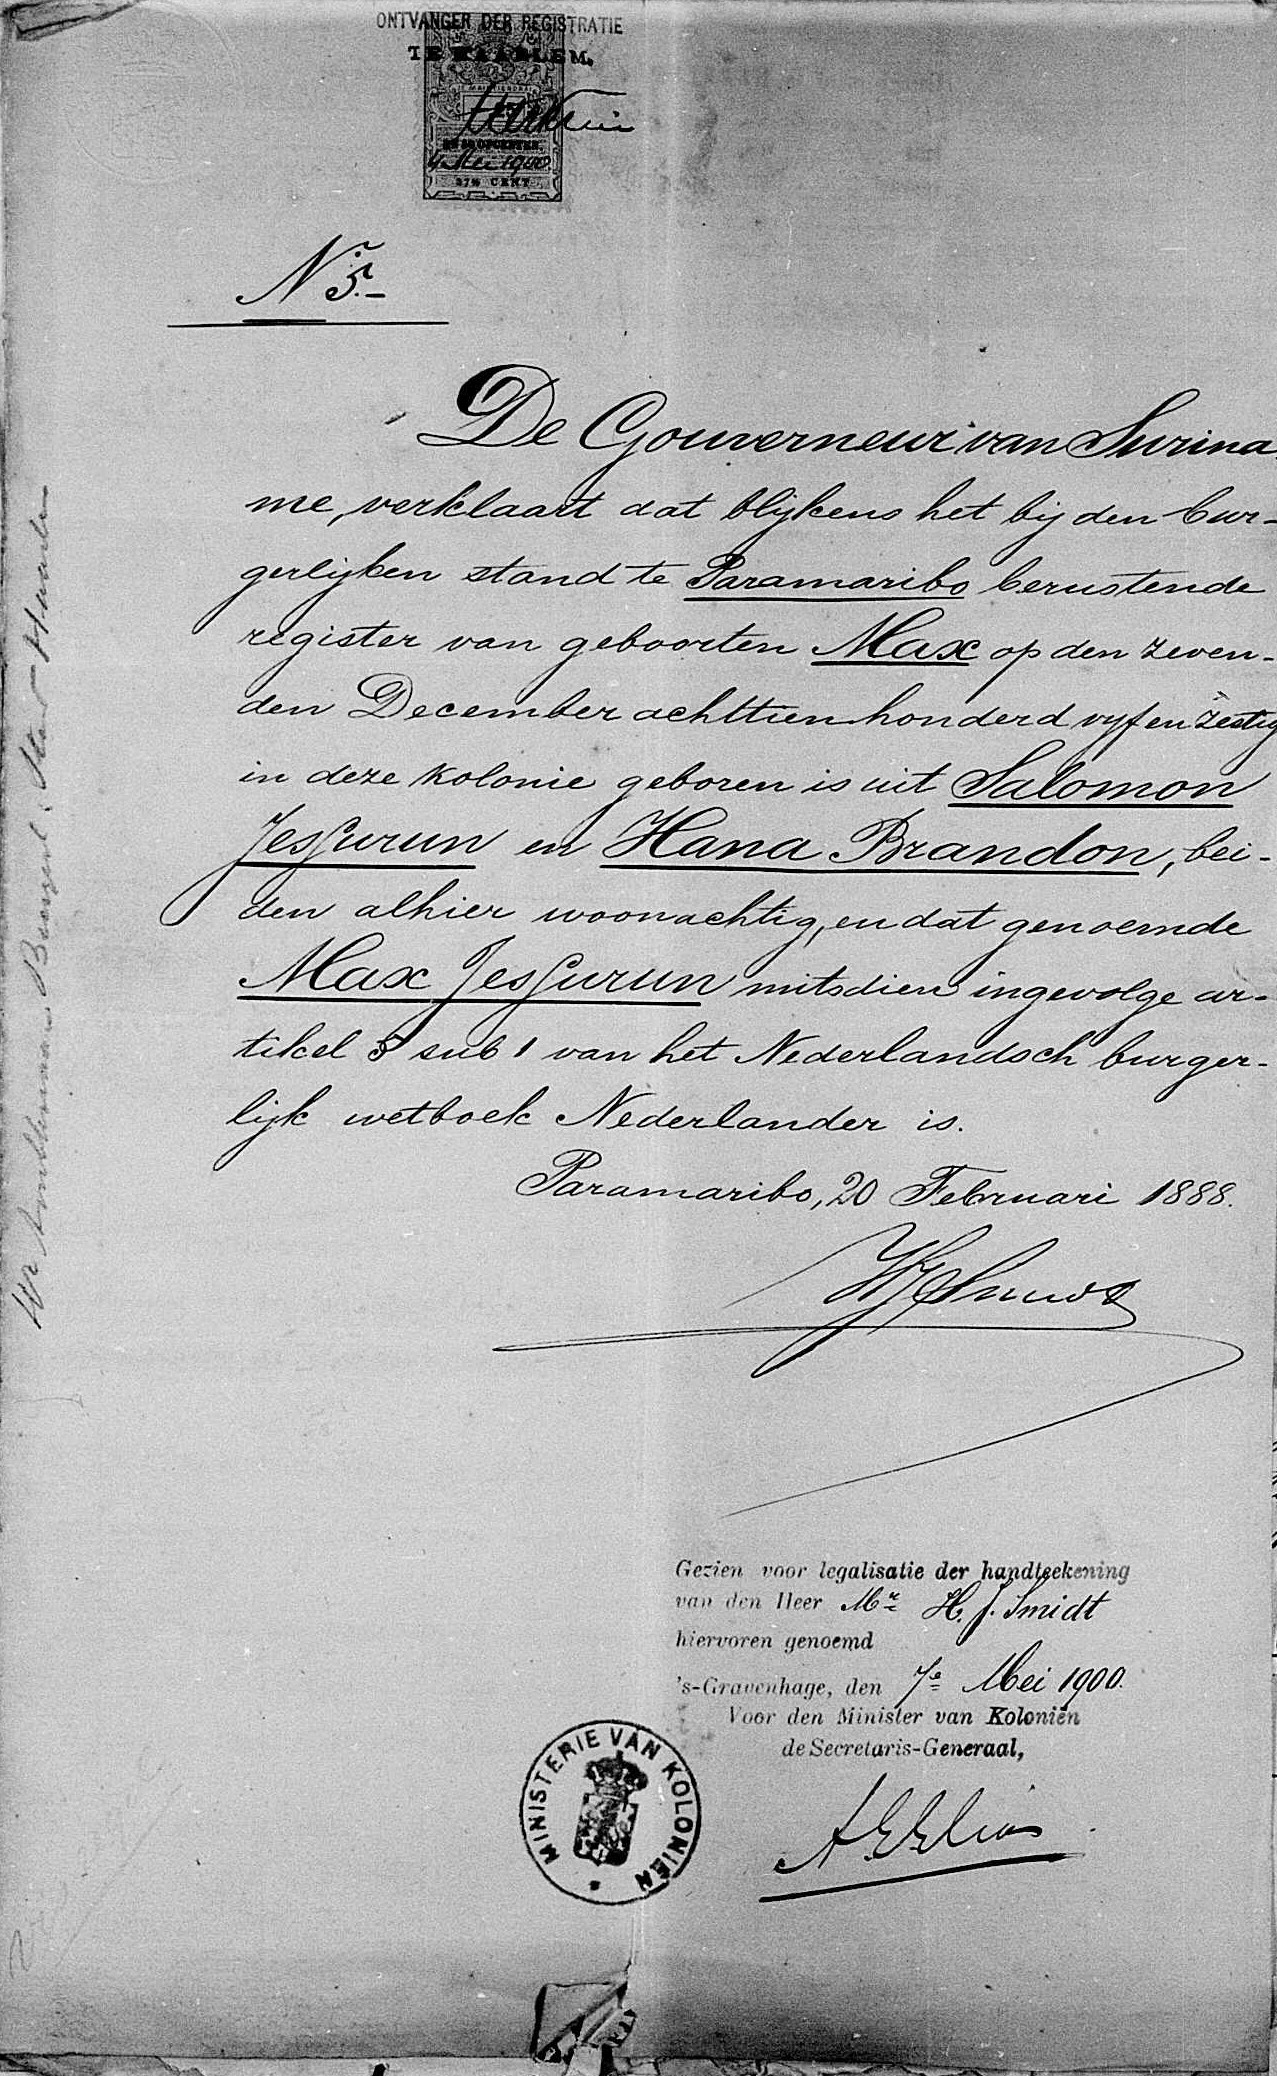 ONTVANGER DER REGISTRATIE
TE HAARLEM.
4 Mei 1900.
37½ CENT
No 5.-
De Gouverneur van Surina-
me, verklaart dat blijkens het bij den bur-
gerlijken stand te Paramaribo berustende
register van geboorten Max op den zeven-
den December achttienhonderd vijf en zestig
in deze kolonie geboren is uit Salomon
Jessurun en Hana Brandon, bei-
den alhier woonachtig, en dat genoemde
Max Jessurun mitsdien ingevolge ar-
tikel 5 sub 1 van het Nederlandsch burger-
lijk wetboek Nederlander is.
Paramaribo, 20 Februari 1888.
HJSmidt
Gezien voor legalisatie der handteekening
van den Heer Mr H. J. Smidt
hiervoren genoemd
's-Gravenhage, den 7e Mei 1900.
Voor den Minister van Koloniën
de Secretaris-Generaal,
A.E.Elias
MINISTERIE VAN KOLONIEN